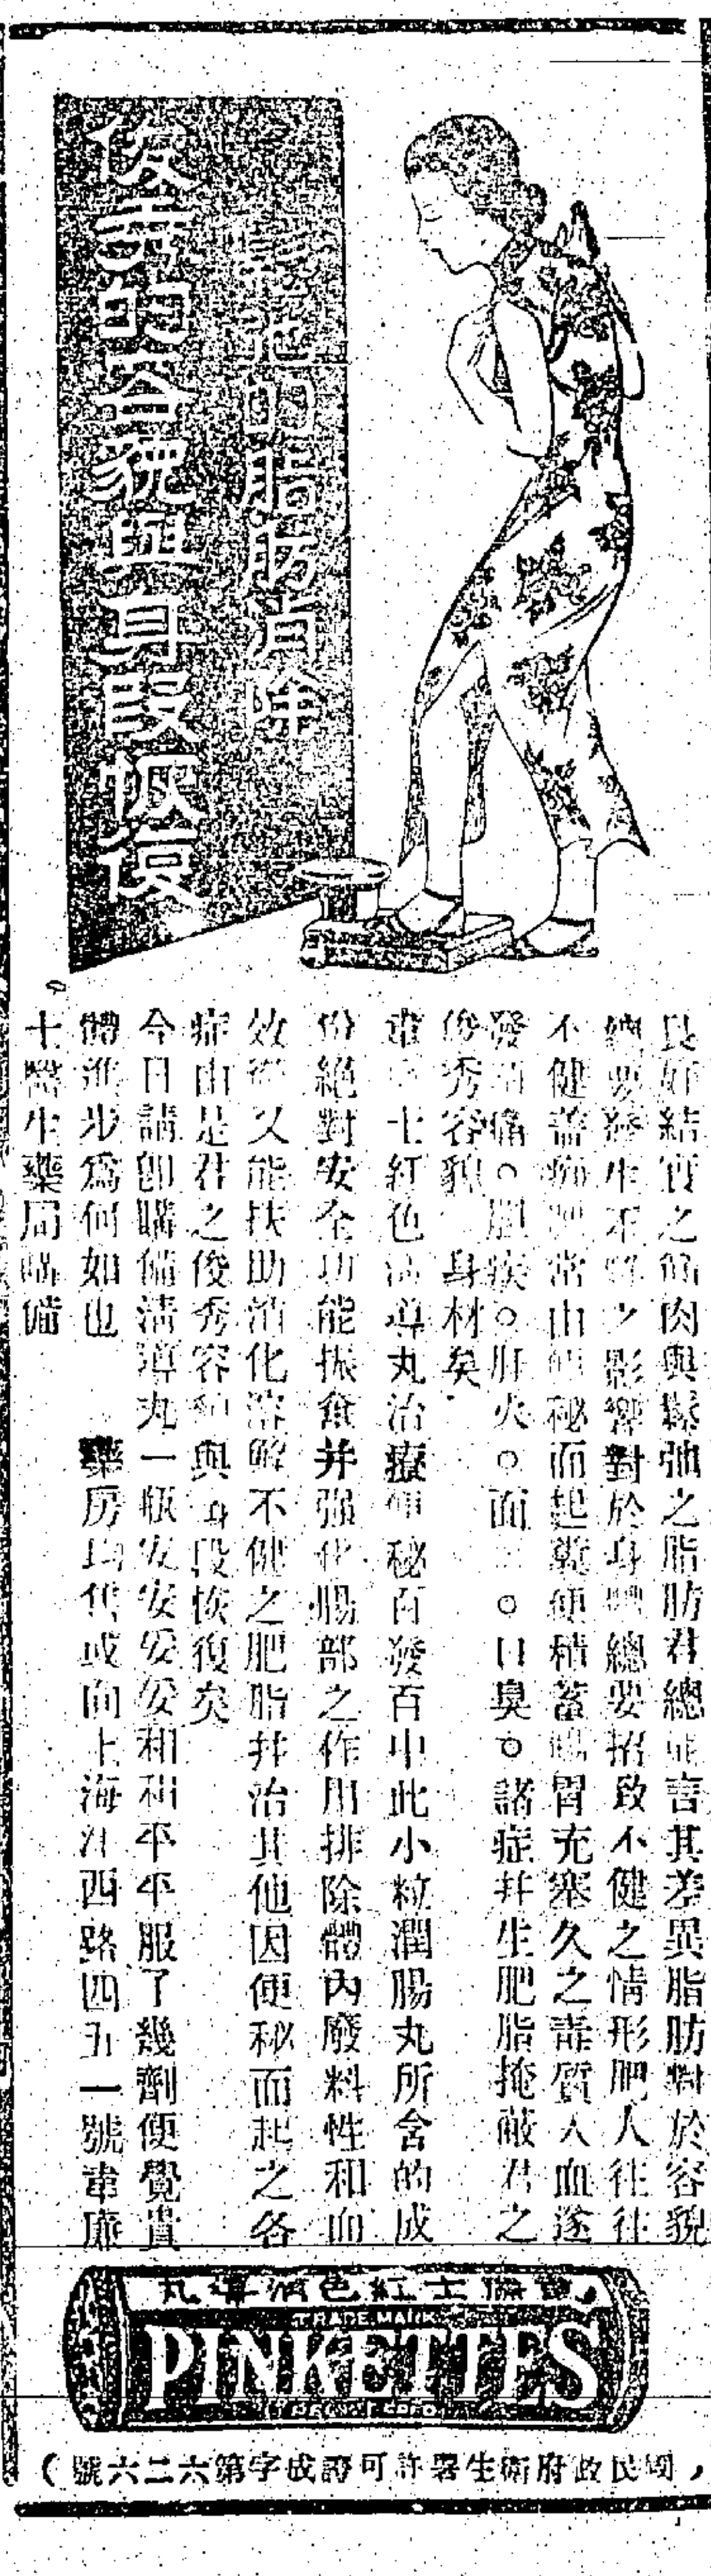 鬆弛的脂肪消除
俊秀的容貌與身段恢復
良好結實之筋肉與鬆弛之脂肪君總能言其差異脂肪對於容貌
總要發生不好之影響對於身體總要招致不健之情形肥人往往
不健營常由便秘而起糞便積蓄腸胃充塞久之毒質入血遂
發頭痛。胆疾。肝火。面。口臭。諸症井生肥脂掩蔽君之
俊秀容貌身材矣
韋士紅色清導丸治療便秘百發百中此小粒潤腸丸所含的成
份絕對安全功能振食并强化腸部之作用排除體內廢料性和而
效又能扶助消化溶解不健之肥脂井治其他因便秘而起之各
症由是君之俊秀容貌與身段恢復矣
今日請卽購備清導丸一瓶安安安安和和平平服了幾劑便覺貴
體進步爲何如也　藥房均售或向上海江西路四五一號韋廉
士醫生藥局購備
韋廉士紅色清導丸
TRADE MARK
PINKETTES
國民政府衛生署許可證成字第六二六號